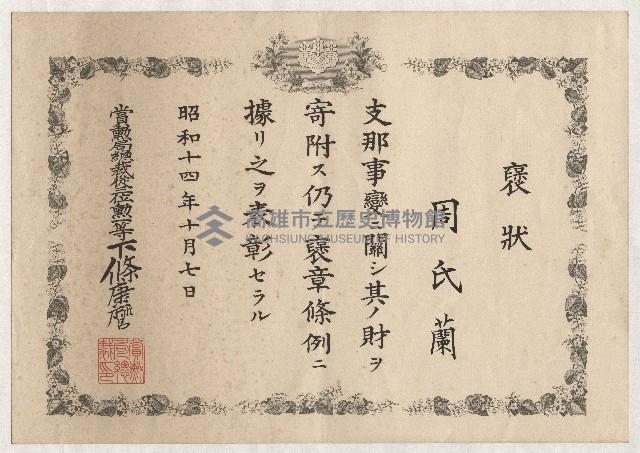 褒狀
周氏蘭
支那事變ニ關シ其ノ財ヲ
寄附ス仍テ褒章條例ニ
據リ之ヲ表彰セラル
昭和十四年十月七日
賞勳局總裁從三位勳一等下條康麿
高雄市立歷史博物館
KAOHSIUNG MUSEUM OF HISTORY